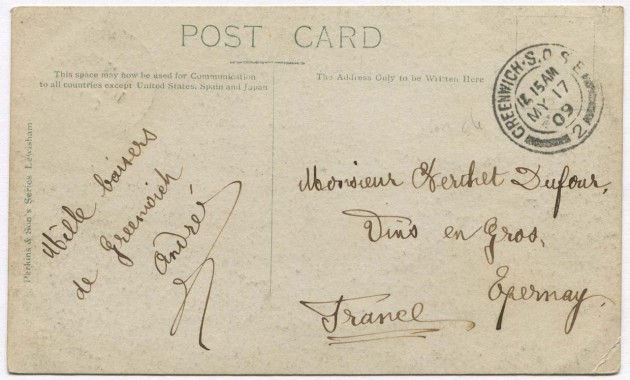 POST CARD
This space may now be used for Communication
to all countries except United States, Spain and Japan
The Address Only to be Written Here
GREENWICH·S.O.S.E
12.15AM
MY 17
09
2
Perkins & Son's Series Lewisham
Mille baisers
de Greenwich
André
Monsieur Berthet Dufour,
Vins en Gros,
Epernay.
France